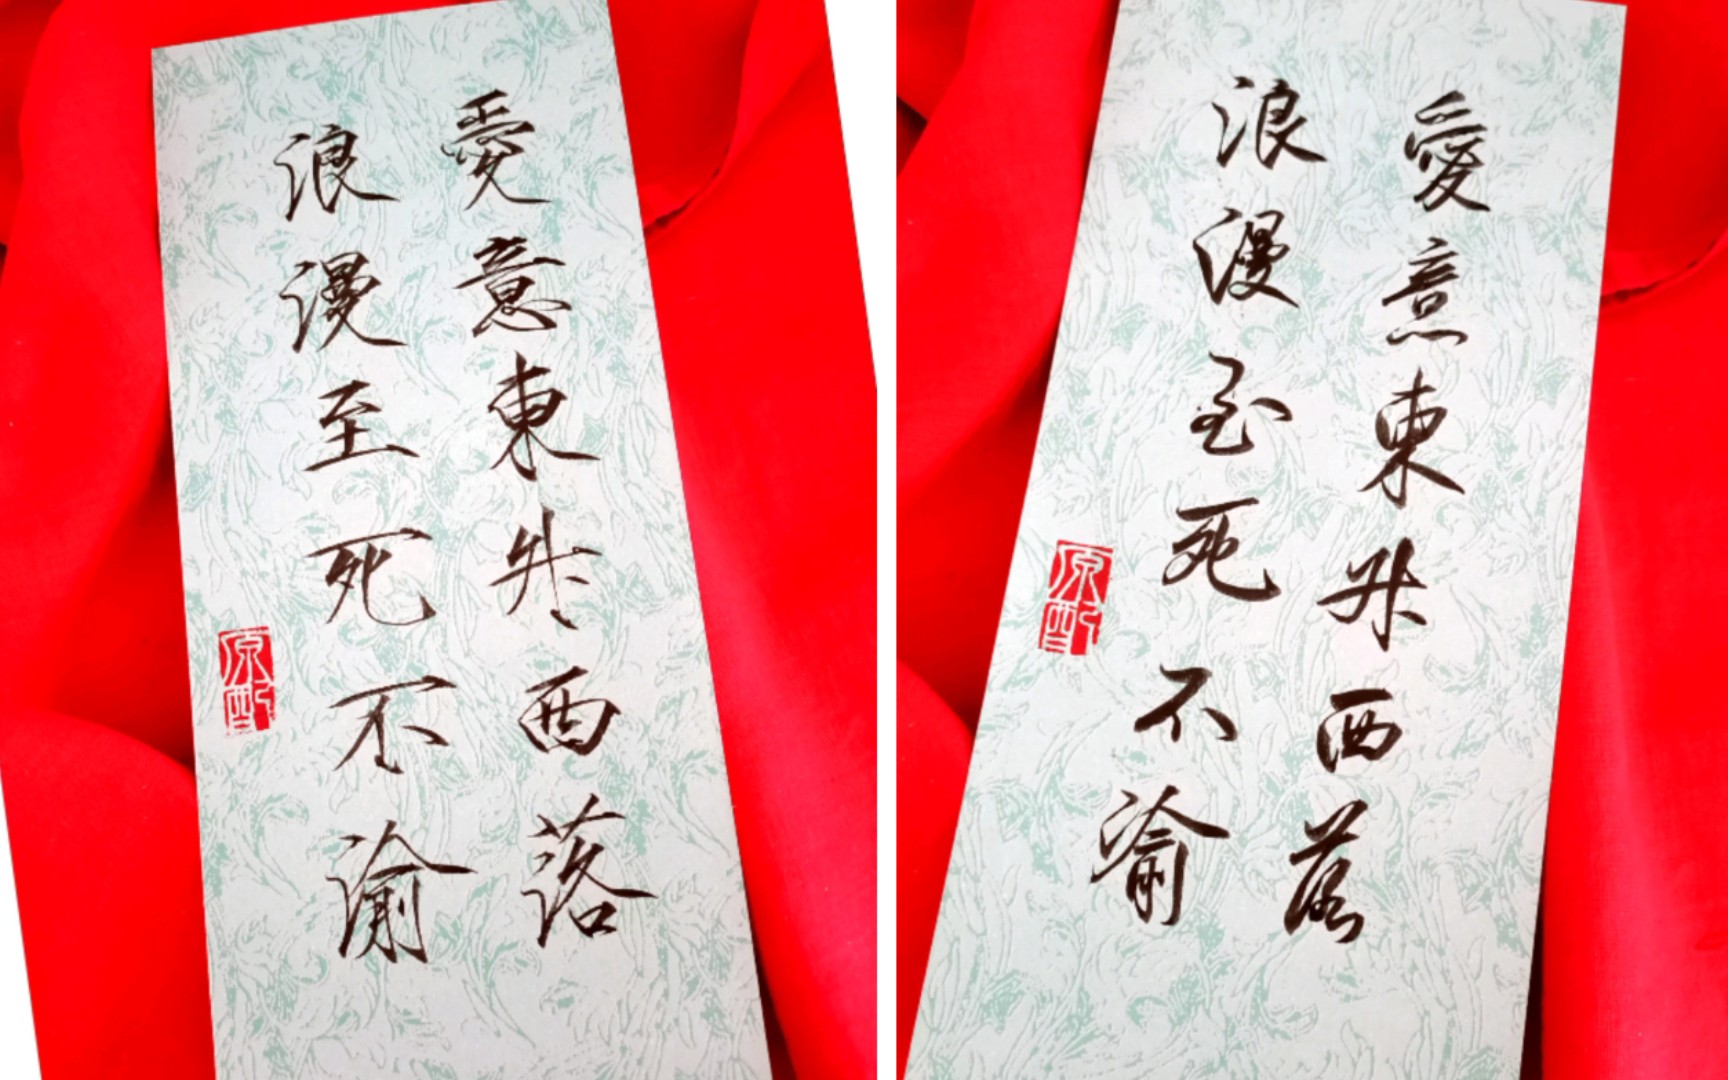 愛意東升西落
浪漫至死不渝
原配
愛意東升西落
浪漫至死不渝
原配